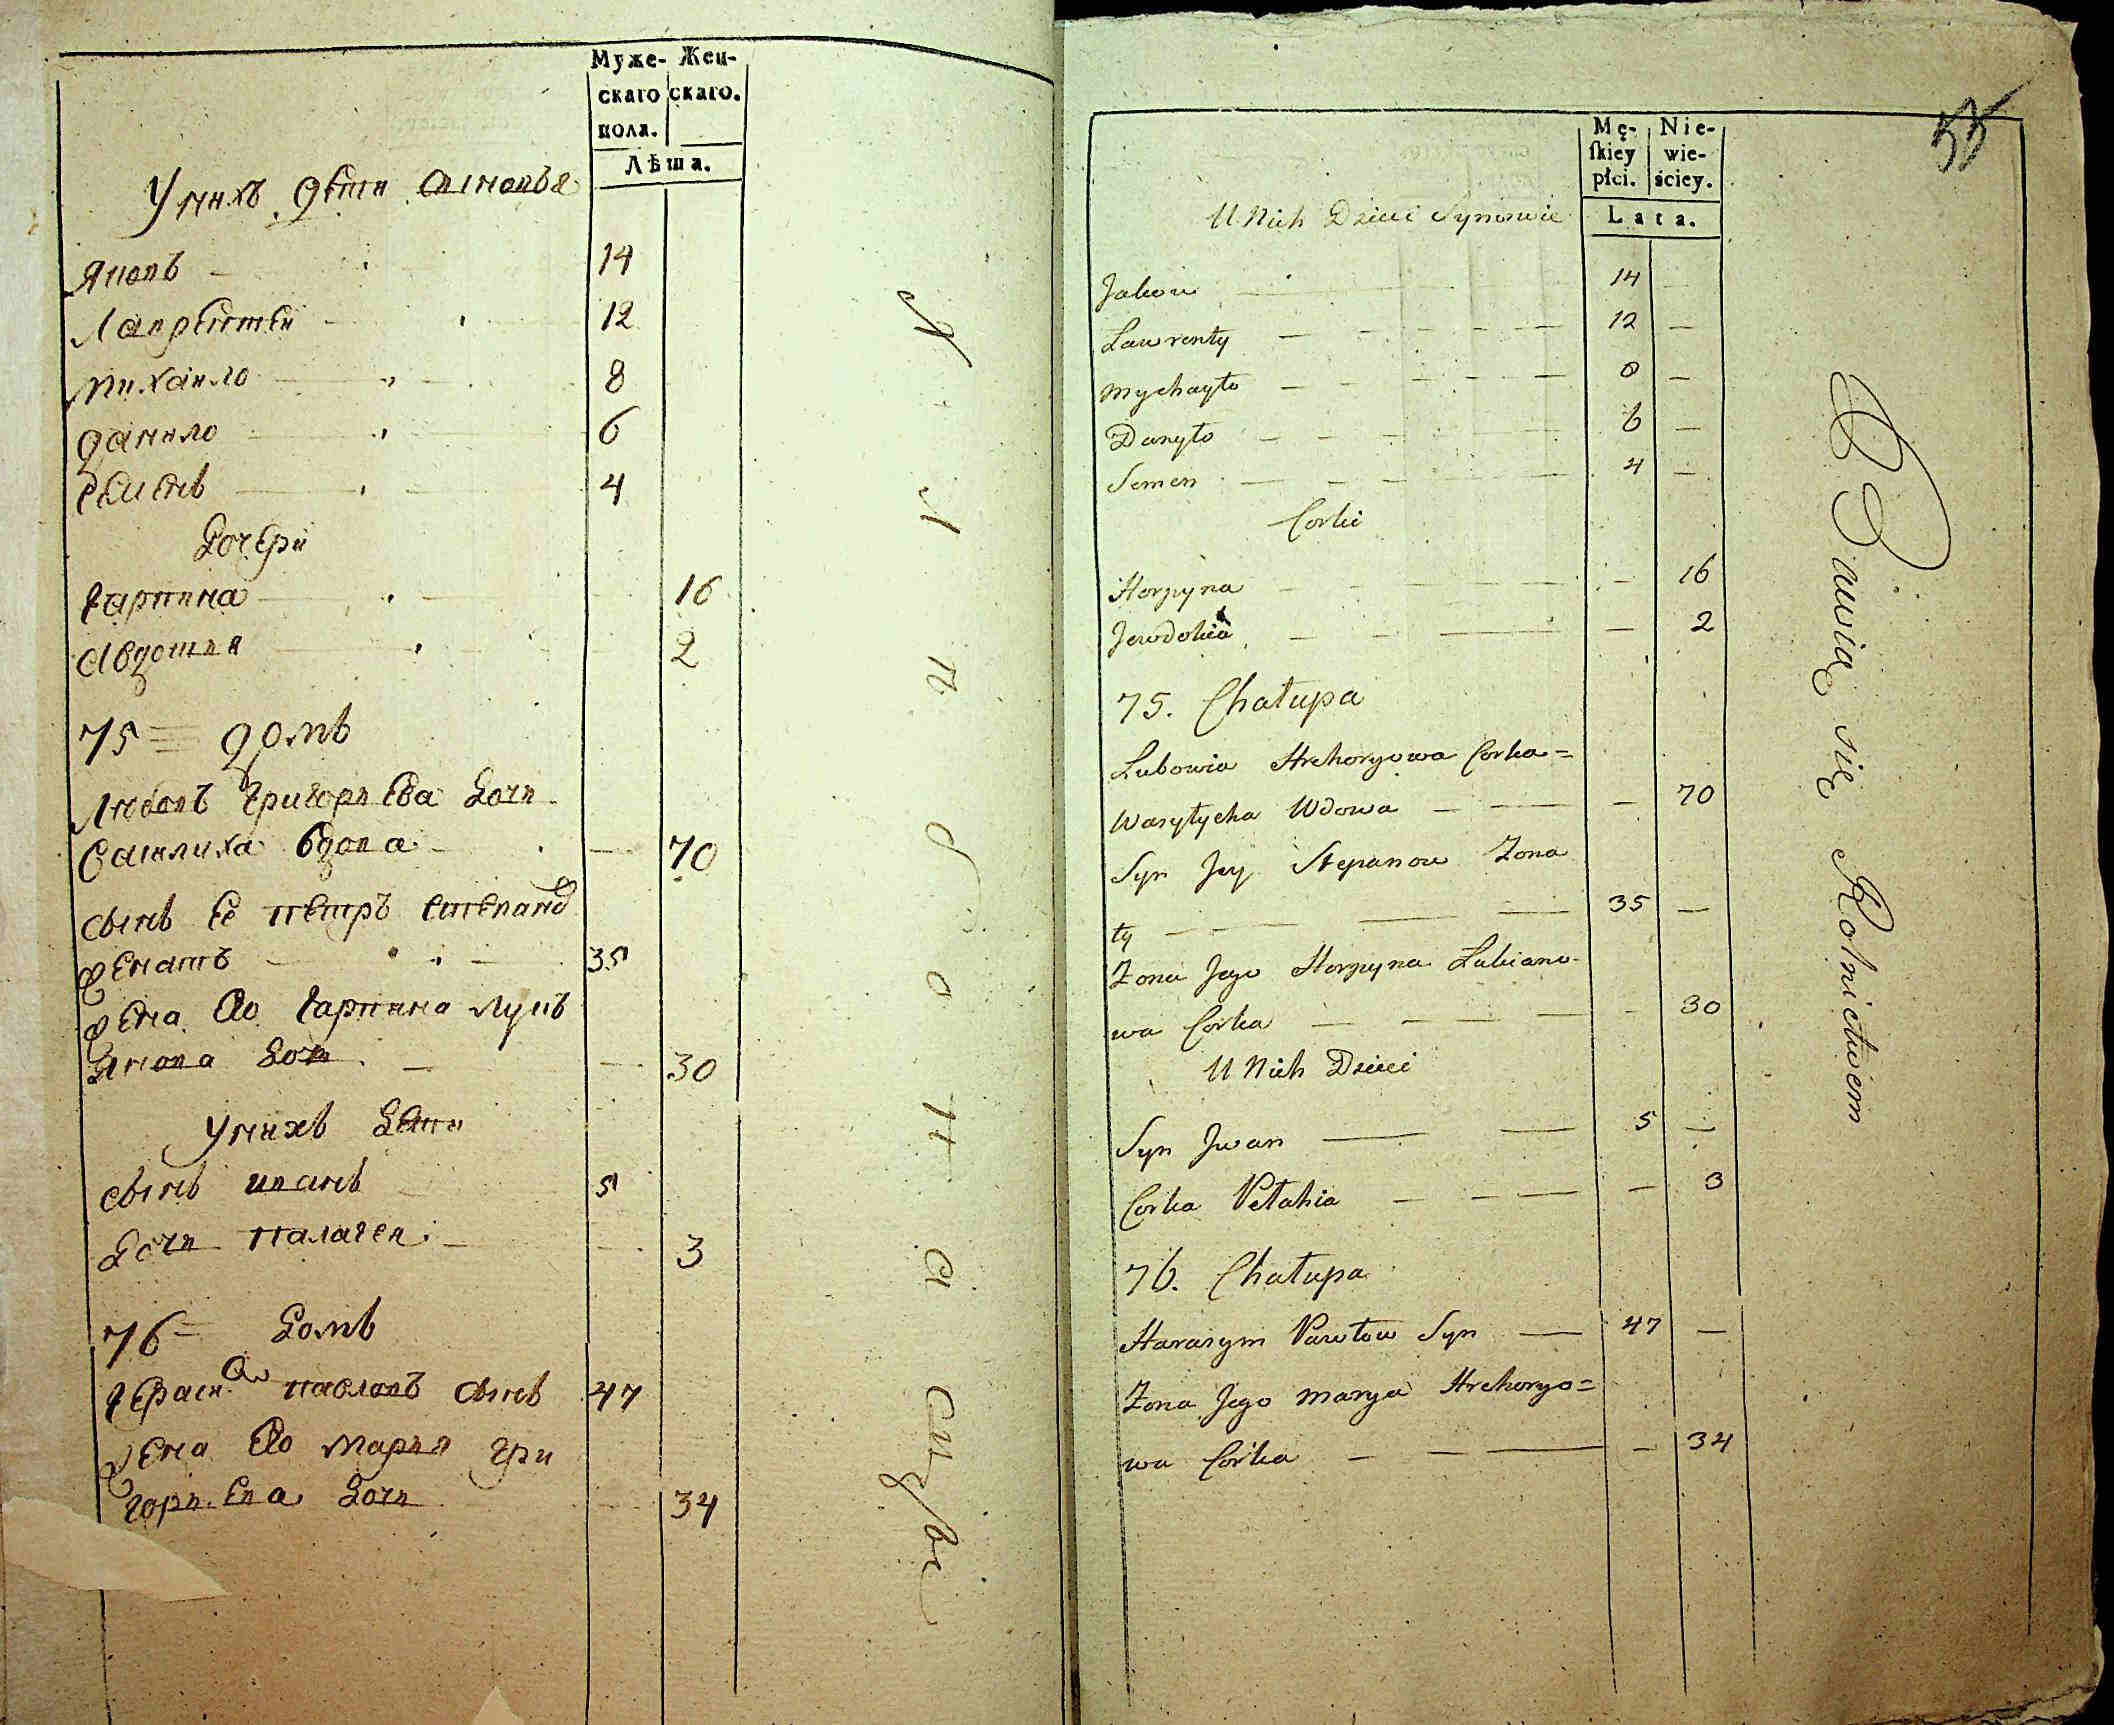 Муже- Жен-
скаго скаго.
пола.
Лѣта.
У нихъ дети сыновья
Яковъ 14
Лаврентеи 12
Михаило 8
Данило 6
Семенъ 4
Дочери
Гарпина 16
Авдотия 2
75 домъ
Любовъ Григориева дочи
Василиха вдова — 70
сынъ ее Петръ Степанов
женатъ 35
жена его Гарпина Лукъ
янова дочи — 30
У нихъ дети
сынъ Иванъ 5
дочи Палагея 3
76 домъ
Герасим Павловъ сынъ 47
жена его Мария Гри
гориева дочи — 34
55
Mę- Nie-
ſkiey wie-
płci. ściey.
Lata.
U Nich Dzieci Synowie
Jakow 14 —
Lawrenty 12 —
Mychayło 8 —
Danyło 6 —
Semen 4 —
Corki
Horpyna — 16
Jewdokia — 2
75. Chałupa
Lubowia Hrehoryowa Corka=
Wasylycha Wdowa — 70
Syn Jey Stepanow Zona
ty 35 —
Zona Jego Horpyna Lukiano-
wa Corka — 30
U Nich Dzieci
Syn Jwan 5 —
Corka Pełahia — 3
76. Chałupa
Harasym Pawłow Syn 47 —
Zona Jego Marya Hrehoryo=
wa Corka — 34
Bawią się Rolnictwem